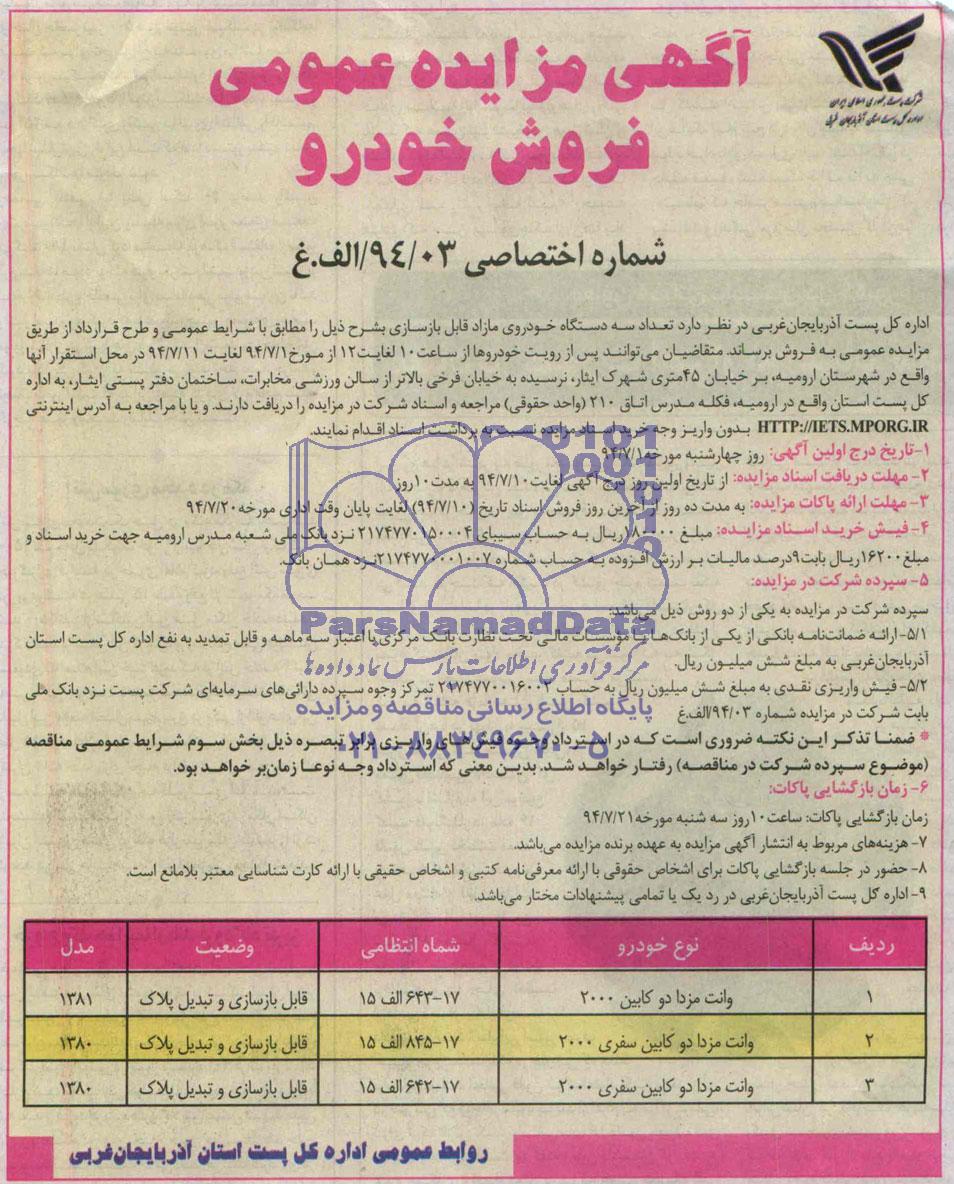 شرکت پست جمهوری اسلامی ایران
اداره کل پست استان آذربایجان غربی
آگهی مزایده عمومی
فروش خودرو
شماره اختصاصی ۹۴/۰۳/الف.غ
اداره کل پست آذربایجان‌غربی در نظر دارد تعداد سه دستگاه خودروی مازاد قابل بازسازی بشرح ذیل را مطابق با شرایط عمومی و طرح قرارداد از طریق
مزایده عمومی به فروش برساند. متقاضیان می‌توانند پس از رویت خودروها از ساعت۱۰ لغایت۱۲ از مورخ۹۴/۷/۱ لغایت ۹۴/۷/۱۱ در محل استقرار آنها
واقع در شهرستان ارومیه، بر خیابان ۴۵متری شهرک ایثار، نرسیده به خیابان فرخی بالاتر از سالن ورزشی مخابرات، ساختمان دفتر پستی ایثار، به اداره
کل پست استان واقع در ارومیه، فکله مدرس اتاق ۲۱۰ (واحد حقوقی) مراجعه و اسناد شرکت در مزایده را دریافت دارند. و یا با مراجعه به آدرس اینترنتی
HTTP://IETS.MPORG.IR بدون واریز وجه خرید اسناد مزایده نسبت به برداشت اسناد اقدام نمایند.
۱-تاریخ درج اولین آگهی: روز چهارشنبه مورخه۹۴/۷/۱
۲- مهلت دریافت اسناد مزایده: از تاریخ اولین روز درج آگهی لغایت۹۴/۷/۱۰ به مدت ۱۰روز
۳- مهلت ارائه پاکات مزایده: به مدت ده روز از آخرین روز فروش اسناد تاریخ (۹۴/۷/۱۰) لغایت پایان وقت اداری مورخه۹۴/۷/۲۰
۴- فیش خرید اسناد مزایده: مبلغ ۱۸۰۰۰۰ریال به حساب سیبای ۲۱۷۴۷۷۰۱۵۰۰۰۴ نزد بانک ملی شعبه مدرس ارومیه جهت خرید اسناد و
مبلغ۱۶۲۰۰ریال بابت۹درصد مالیات بر ارزش افزوده به حساب شماره ۲۱۷۴۷۷۰۰۰۱۰۰۷نزد همان بانک.
۵- سپرده شرکت در مزایده:
سپرده شرکت در مزایده به یکی از دو روش ذیل می‌باشد:
۵/۱-ارائه ضمانت‌نامه بانکی از یکی از بانک‌ها موسسات مالی تحت نظارت بانک مرکزی با اعتبار سه ماهه و قابل تمدید به نفع اداره کل پست استان
آذربایجان‌غربی به مبلغ شش میلیون ریال.
۵/۲- فیش واریزی نقدی به مبلغ شش میلیون ریال به حساب ۲۱۷۴۷۷۰۰۱۶۰۰۲ تمرکز وجوه سپرده دارائی‌های سرمایه‌ای شرکت پست نزد بانک ملی
بابت شرکت در مزایده شماره ۹۴/۰۳/الف.غ
* ضمنا تذکر این نکته ضروری است که در استرداد وجوه فیش‌های واریزی برابر تبصره ذیل بخش سوم شرایط عمومی مناقصه
(موضوع سپرده شرکت در مناقصه) رفتار خواهد شد. بدین معنی که استرداد وجه نوعا زمان‌بر خواهد بود.
۶- زمان بازگشایی پاکات:
زمان بازگشایی پاکات: ساعت۱۰روز سه شنبه مورخه۹۴/۷/۲۱
۷- هزینه‌های مربوط به انتشار آگهی مزایده به عهده برنده مزایده می‌باشد.
۸- حضور در جلسه بازگشایی پاکات برای اشخاص حقوقی با ارائه معرفی‌نامه کتبی و اشخاص حقیقی با ارائه کارت شناسایی معتبر بلامانع است.
۹- اداره کل پست آذربایجان‌غربی در رد یک یا تمامی پیشنهادات مختار می‌باشد.
ردیف نوع خودرو شماه انتظامی وضعیت مدل
۱ وانت مزدا دو کابین ۲۰۰۰ ۱۷-۶۴۳ الف ۱۵ قابل بازسازی و تبدیل پلاک ۱۳۸۱
۲ وانت مزدا دو کابین سفری ۲۰۰۰ ۱۷-۸۴۵ الف ۱۵ قابل بازسازی و تبدیل پلاک ۱۳۸۰
۳ وانت مزدا دو کابین سفری ۲۰۰۰ ۱۷-۶۴۲ الف ۱۵ قابل بازسازی و تبدیل پلاک ۱۳۸۰
روابط عمومی اداره کل پست استان آذربایجان‌غربی
ParsNamadData
مرکز فرآوری اطلاعات پارس نماد داده‌ها
پایگاه اطلاع رسانی مناقصه و مزایده
۰۲۱-۸۸۳۴۹۶۷۰-۵